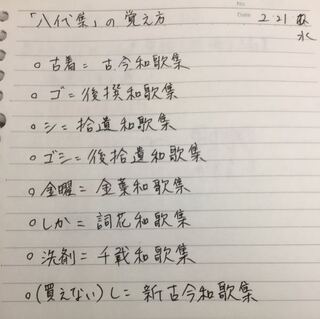 No.
Date 2 21
水
「八代集」の覚え方
○古着 = 古今和歌集
○ゴ = 後撰和歌集
○シ = 拾遺和歌集
○ゴシ = 後拾遺和歌集
○金曜 = 金葉和歌集
○しか = 詞花和歌集
○洗剤 = 千載和歌集
○(買えない)し = 新古今和歌集